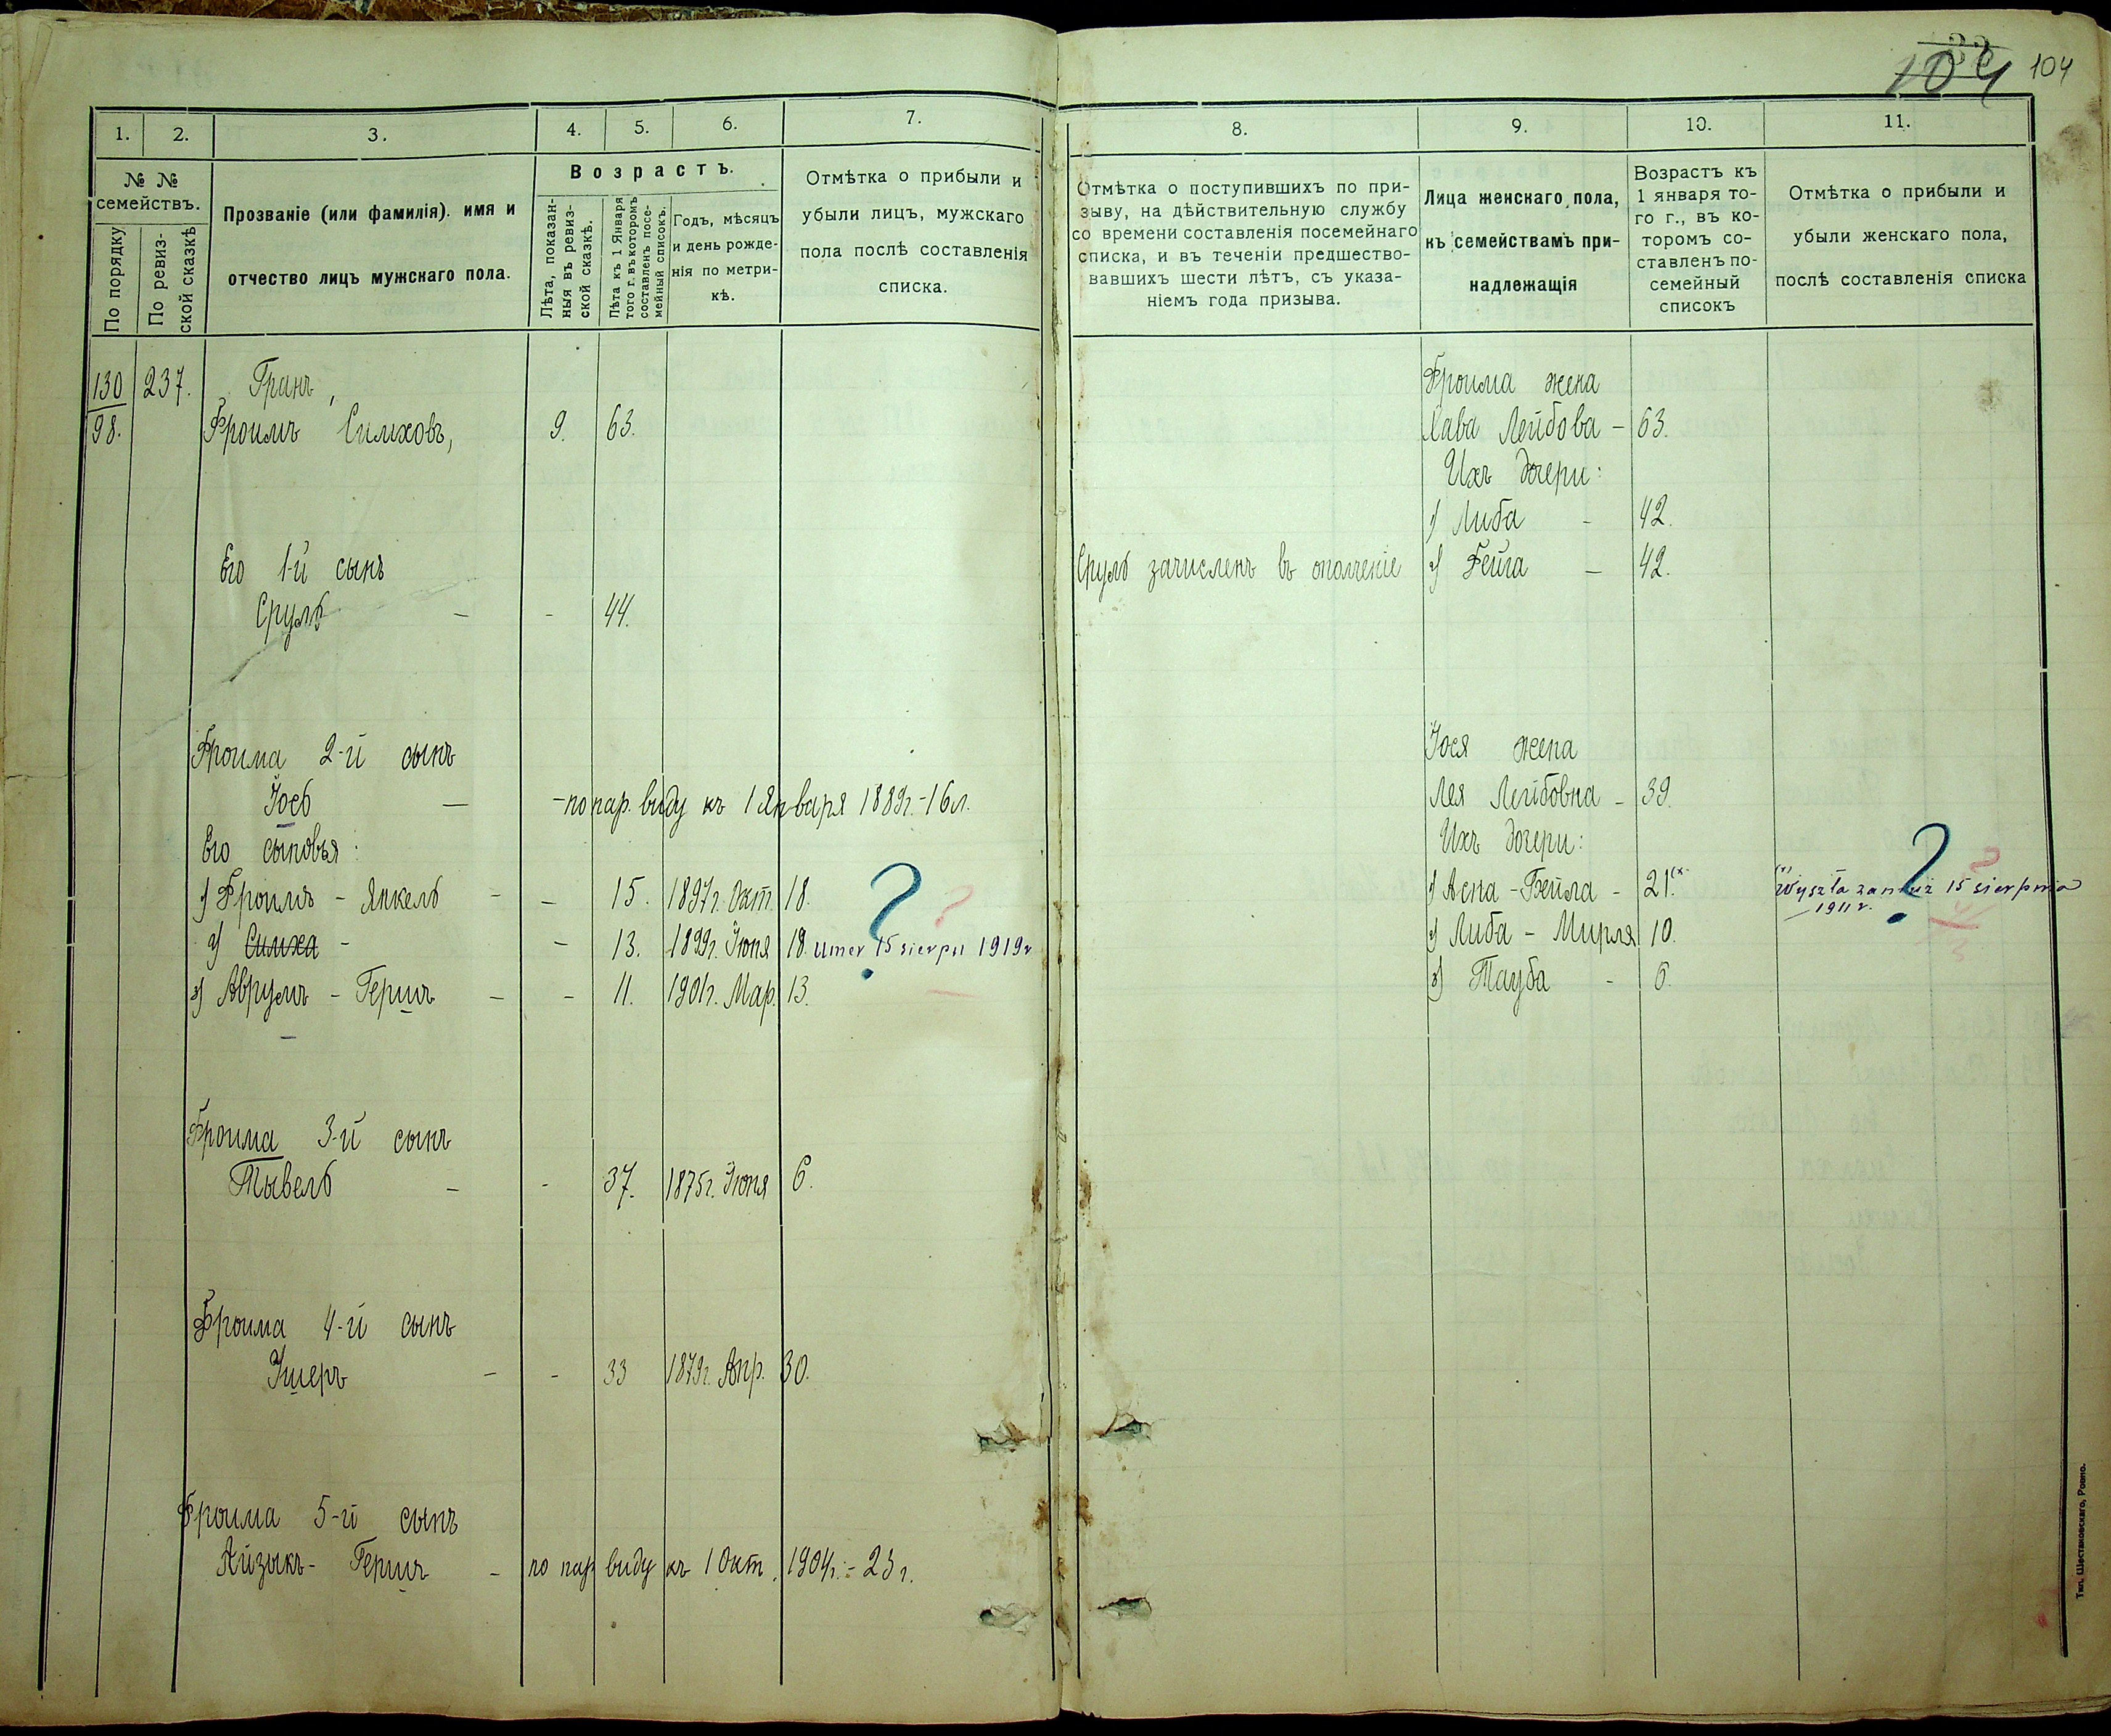 104 104
1. 2. 3. 4. 5. 6. 7.
№ № семействъ.
По порядку
По ревизской сказкѣ
Прозваніе (или фамилія). имя и
отчество лицъ мужскаго пола.
Возрастъ.
Лѣта, показан-
ныя въ ревиз-
ской сказкѣ.
Лѣта къ 1 Января
того г. въ которомъ
составленъ посе-
мейный списокъ.
Годъ, мѣсяцъ
и день рожде-
нія по метри-
кѣ.
Отмѣтка о прибыли и
убыли лицъ, мужскаго
пола послѣ составленія
списка.
130 237. Гранъ,
98. Фроимъ Симховъ, 9. 63.
Его 1-й сынъ
Сруль - - 44.
Фроима 2-й сынъ
Іось - - по пар. виду къ 1 Января 1889г. - 16 л.
Его сыновья:
1) Фроимъ - Янкель - - 15. 1897г. Окт. 18. ? ?
2) Симха - - 13. 1899г. Іюня 18. umer 15 sierpn 1919r
3) Аврумъ - Гершъ - - 11. 1901г. Мар. 13.
Фроима 3-й сынъ
Тывель - - 37. 1875г. Іюня 6.
Фроима 4-й сынъ
Ушеръ - - 33 1879г. Апр. 30.
Фроима 5-й сынъ
Айзыкъ - Гершъ - по пар виду къ 1 Окт. 1904г. - 23 г.
8. 9. 10. 11.
Отмѣтка о поступившихъ по при-
зыву, на дѣйствительную службу
со времени составленія посемейнаго
списка, и въ теченіи предшество-
вавшихъ шести лѣтъ, съ указа-
ніемъ года призыва.
Лица женскаго пола,
къ семействамъ при-
надлежащія
Возрастъ къ
1 января то-
го г., въ ко-
торомъ со-
ставленъ по-
семейный
списокъ
Отмѣтка о прибыли и
убыли женскаго пола,
послѣ составленія списка
Фроима жена
Хава Лейбова - 63.
Ихъ дочери:
1) Либа - 42.
Сруль зачисленъ въ ополченіе 2) Фейга - 42.
Іося жена
Лея Лейбовна - 39.
Ихъ дочери:
1) Асна - Бейла - 21.(x (x) Wyszła zamąż 15 sierpnia
1911 r. ? ?
2) Либа - Мирля 10.
3) Тауба - 6.
Тип. Шестаковскаго, Ровно.